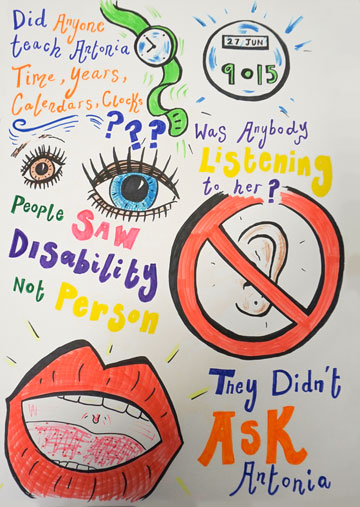 Did Anyone
teach Antonia
Time, Years,
Calendars, Clocks
???
27 JUN
9:015
Was Anybody
Listening
to her?
People SAW
Disability
Not Person
They Didn't
ASK
Antonia